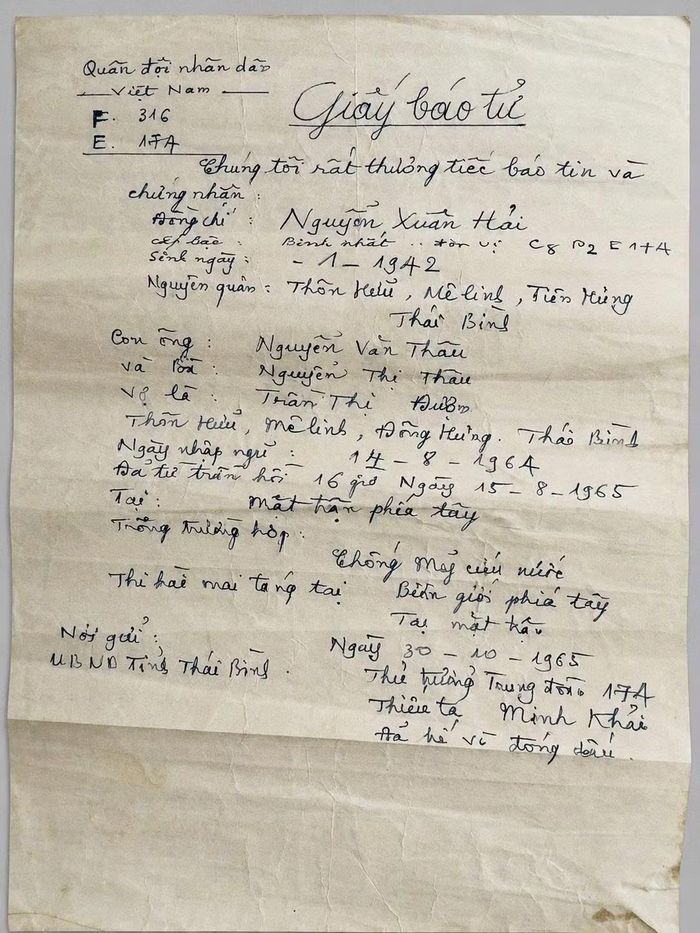 Quân đội nhân dân
Việt Nam
F. 316
E. 174
Giấy báo tử
Chúng tôi rất thương tiếc báo tin và
chứng nhận:
Đồng chí: Nguyễn Xuân Hải
Cấp bậc: Binh nhất .. đơn vị C8 D2 E174
Sinh ngày: - 1 - 1942
Nguyên quán: Thôn Hữu, Mê linh, Tiên Hưng
Thái Bình
Con ông: Nguyễn Văn Thâu
và Bà: Nguyễn Thị Thâu
Vợ là: Trần Thị
Thôn Hữu, Mê linh, Đông Hưng. Thái Bình
Ngày nhập ngũ: 14 - 8 - 1964
Đã tử trần hồi 16 giờ Ngày 15 - 8 - 1965
Tại: Mặt trận phía tây
Trong trường hợp:
Chống Mỹ cứu nước
Thi hài mai táng tại Biên giới phía tây
Tại mặt trận
Nơi gửi: Ngày 30 - 10 - 1965
UBND Tỉnh Thái Bình.
Thủ trưởng Trung đoàn 174
Thiếu tá Minh Khải
Đã ký và đóng dấu.